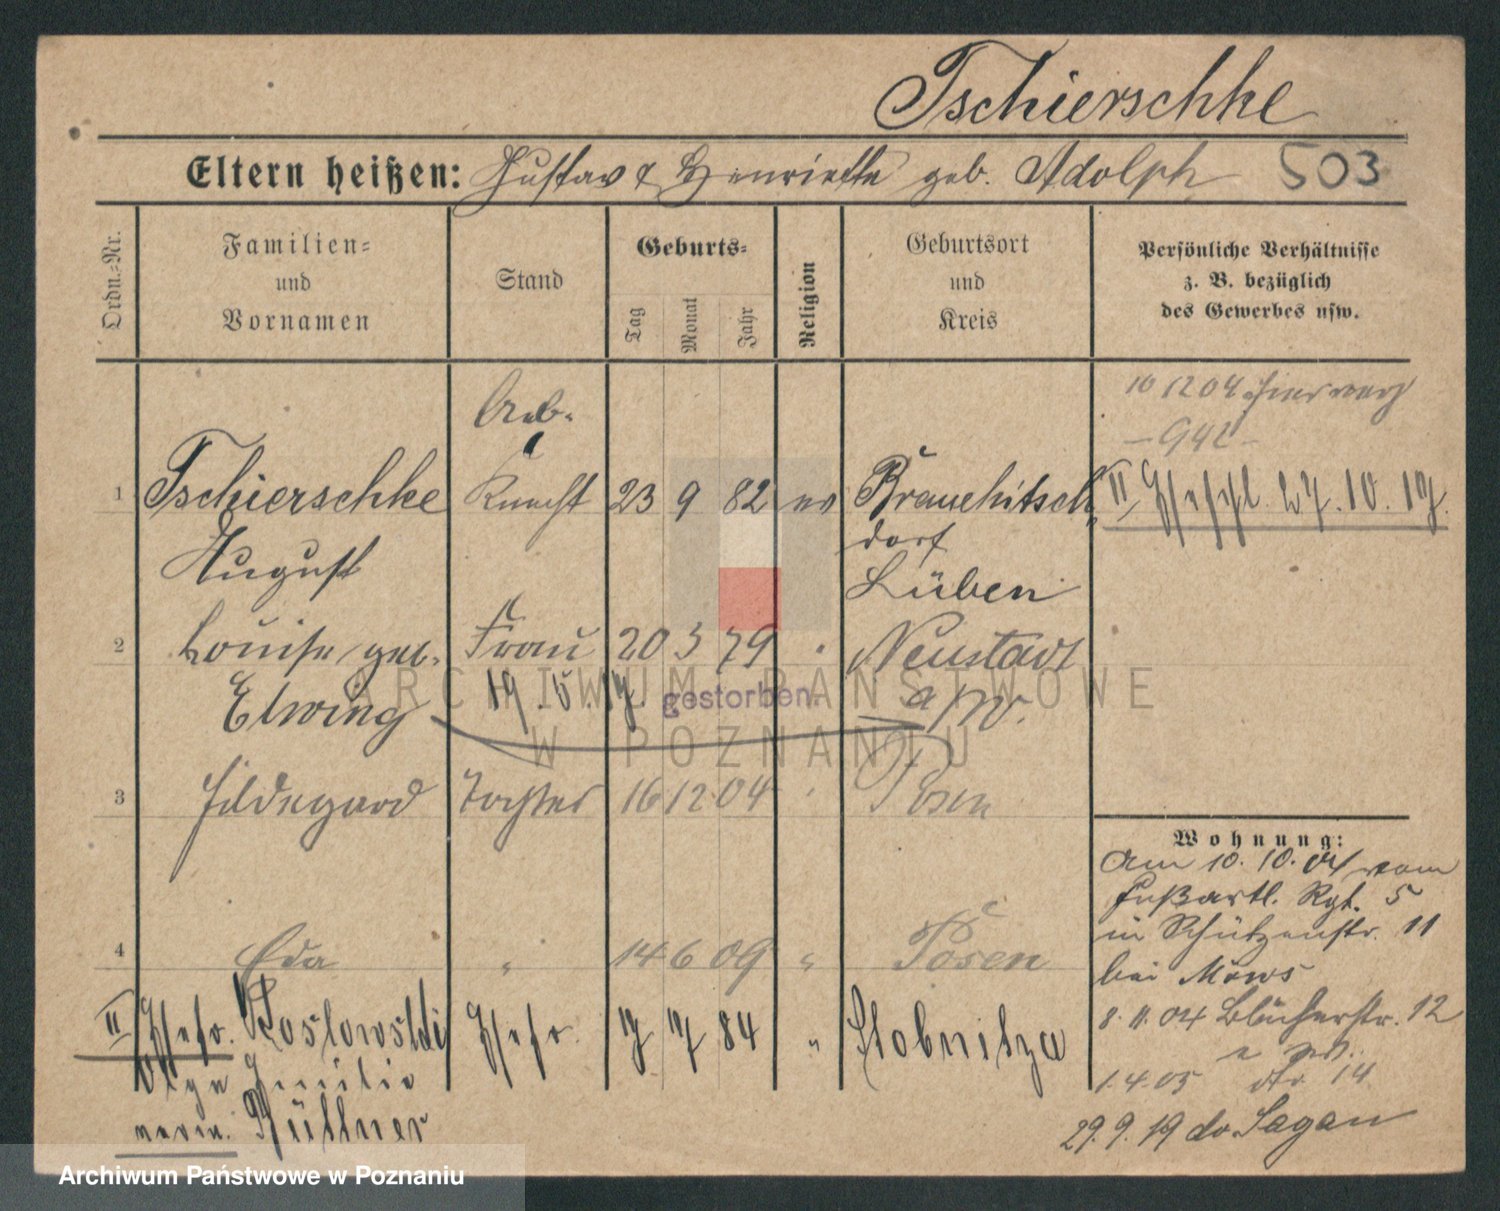 Tschierschke
Eltern heißen: Gustav & Henriette geb. Adolph 503
Ordn.=Nr.
Familien=
und
Vornamen
Stand
Geburts=
Tag
Monat
Jahr
Religion
Geburtsort
und
Kreis
Persönliche Verhältnisse
z. B. bezüglich
des Gewerbes usw.
10 12 04
- 942 -
Arb.
1 Tschierschke Knecht 23 9 82 ev Brauchitsch
dorf
August Lüben
II 27. 10. 17.
2 Louise geb. Frau 20 3 79 Neustadt
Elwing 19. 5. 17. gestorben. a/W.
3 Hildegard Tochter 16 12 04 Posen
4 Eda " 14 6 09 " Posen
II Ehefr. Koslowski Ehefr. 7 7 84 " Stobnitza
Olga Emilie
verw. Hüttner
Wohnung:
am 10. 10. 04 vom
Fußartl. Rgt. 5
in Schützenstr. 11
bei Möws
8. 11. 04 Blücherstr. 12
1. 4. 05 14
29. 9. 19 do Sagan
ARCHIWUM PAŃSTWOWE
W POZNANIU
Archiwum Państwowe w Poznaniu